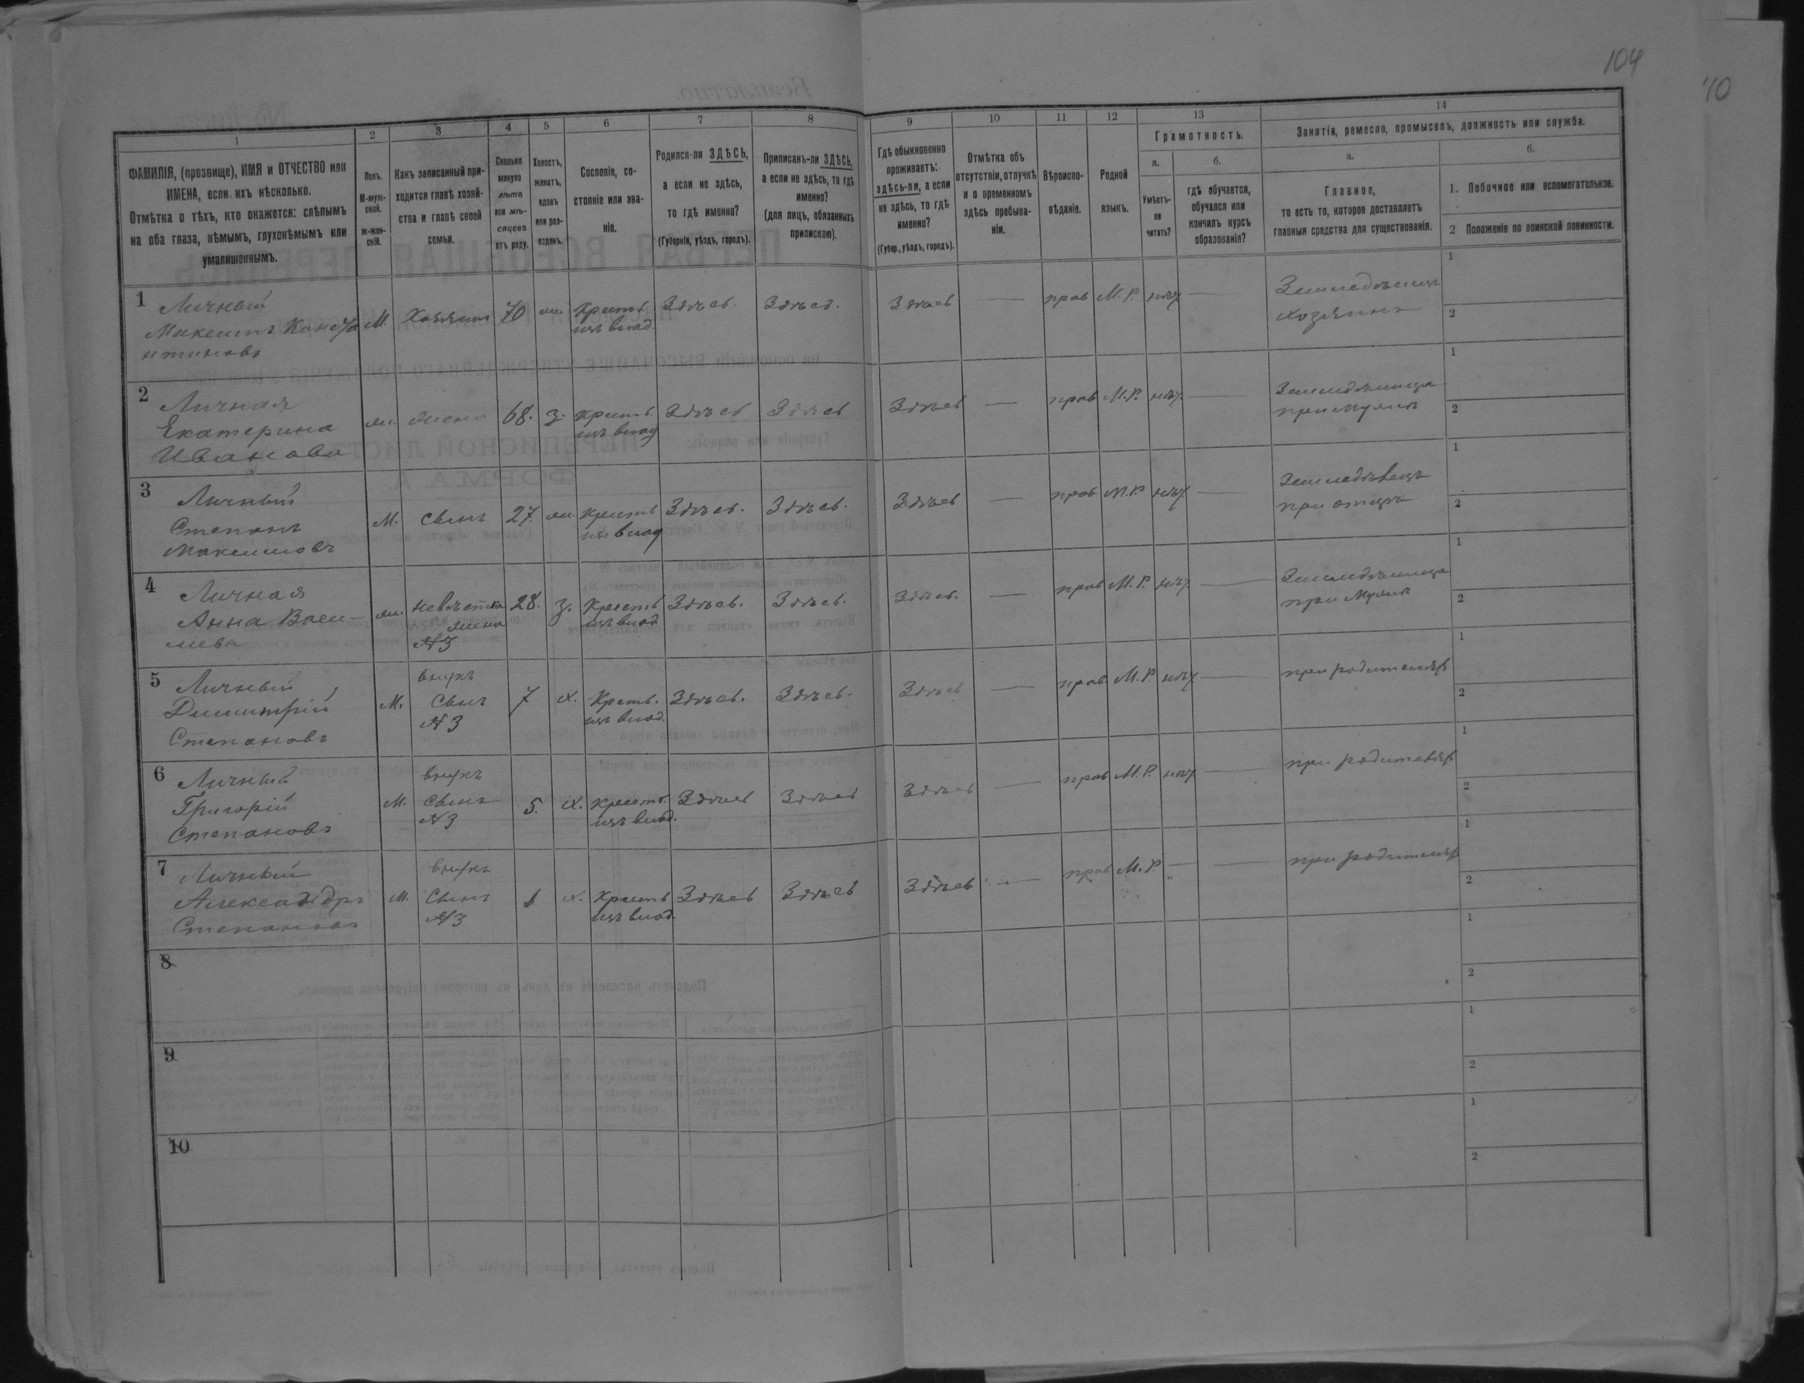 104
10
1
2
3
4
5
6
7
8
9
10
11
12
13
14
ФАМИЛІЯ, (прозвище), ИМЯ и ОТЧЕСТВО или
ИМЕНА, если ихъ нѣсколько.
Отмѣтка о тѣхъ, кто окажется: слѣпымъ
на оба глаза, нѣмымъ, глухонѣмымъ или
умалишеннымъ.
Полъ.
М-муж-
ской.
ж-жен-
скій.
Какъ записанный при-
ходится главѣ хозяй-
ства и главѣ своей
семьи.
Сколько
минуло
лѣтъ
или мѣ-
сяцевъ
отъ роду.
Холостъ,
женатъ,
вдовъ
или раз-
веденъ.
Сословіе, со-
стояніе или зва-
ніе.
Родился-ли ЗДѢСЬ,
а если не здѣсь,
то гдѣ именно?
(Губернія, уѣздъ, городъ).
Приписанъ-ли ЗДѢСЬ,
а если не здѣсь, то гдѣ
именно?
(для лицъ, обязанныхъ
припискою).
Гдѣ обыкновенно
проживаетъ:
здѣсь-ли, а если
не здѣсь, то гдѣ
именно?
(Губер., уѣздъ, городъ).
Отмѣтка объ
отсутствіи, отлучкѣ
и о временномъ
здѣсь пребыва-
ніи.
Вѣроиспо-
вѣданіе.
Родной
языкъ.
Грамотность.
а.
Умѣетъ-
ли
читать?
б.
гдѣ обучается,
обучался или
кончилъ курсъ
образованія?
Занятіе, ремесло, промыселъ, должность или служба.
а.
Главное,
то есть то, которое доставляетъ
главныя средства для существованія.
б.
1. Побочное или вспомогательное.
2 Положеніе по воинской повинности.
1 Личный
Максимъ Конста
нтиновъ
М. Хозяинъ 70 ж. Крестъ. Здѣсь. Здѣсь. Здѣсь — прав М.Р. нѣт — Земледѣлецъ
изъ влад. хозяинъ
1
2
2 Личная
Екатерина
Иванова
ж. жена 68. З. крестъ. Здѣсь Здѣсь Здѣсь — прав М.Р. нѣт — Земледѣлица
изъ влад при мужѣ
1
2
3 Личный
Степанъ
Максимовъ
М. сынъ 27. ж. крестъ Здѣсь. Здѣсь. Здѣсь — прав М.Р. нѣт — Земледѣлецъ
изъ влад при отцѣ
1
2
4 Личная
Анна Васи-
лиева
ж. невѣстка 28. З. Крестъ Здѣсь. Здѣсь. Здѣсь. — прав М.Р. нѣт — Земледѣлица
жена изъ влад при мужѣ
№3
1
2
5 Личный
Димитрій
Степановъ
внукъ
М. сынъ 7 х. Крестъ. Здѣсь. Здѣсь. Здѣсь — прав М.Р. нѣт — при родителях
№3 изъ влад.
1
2
6 Личный
Григорій
Степановъ
внукъ
М. сынъ 5. х. крестъ. Здѣсь Здѣсь Здѣсь — прав М.Р. нѣт — при родителях
№3 изъ влад.
1
2
7 Личный
Александръ
Степановъ
внукъ
М. Сынъ 1 х. Крестъ Здѣсь Здѣсь Здѣсь — прав М.Р — — при родителях
№3 изъ влад.
1
2
8
1
2
9
1
2
10
1
2